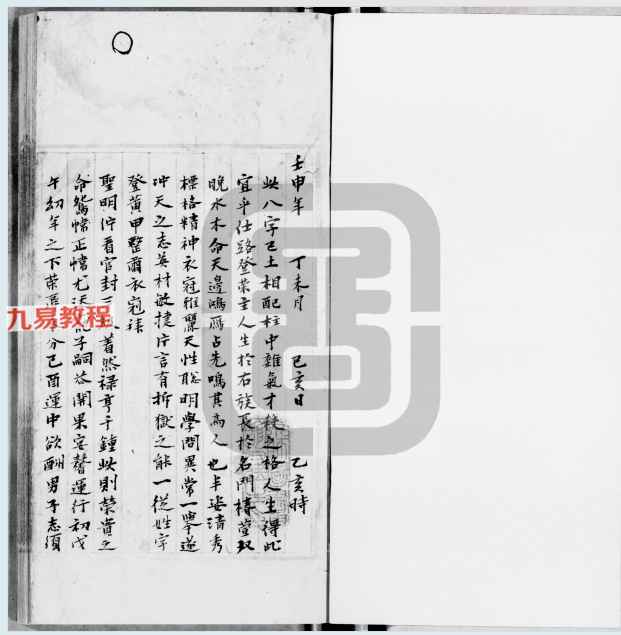 壬申年　丁未月　己亥日　乙亥時
此八字己土相配柱中雜氣才殺之格人生得此
宜乎仕路登榮主人生於右族長於名門椿萱双
晚水木命天邊鴻雁占先鳴其為人也丰姿清秀
標格精神衣冠雅麗天性聡明學問異常一舉遂
冲天之志英材敏捷片言有折獄之能一從姓字
登黃甲整肅衣冠
聖明佇看官封三 着然禄享千鍾此則榮貴之
命鴛幃正幃尤 子嗣 開果定馨運行初戊
午幼年之下榮 分己酉運中欲酬男子志須
九易教程